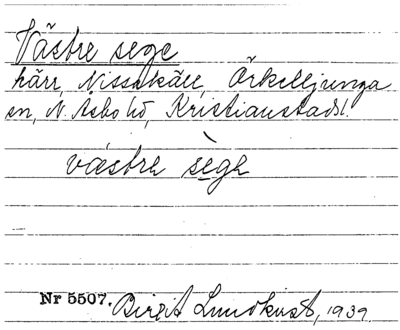 Västre sege
härr, Nissakäll, Örkelljunga
sn, N. Åsbo hd, Kristianstads l.
västre sège
Nr 5507. Birgit Lundkvist, 1939